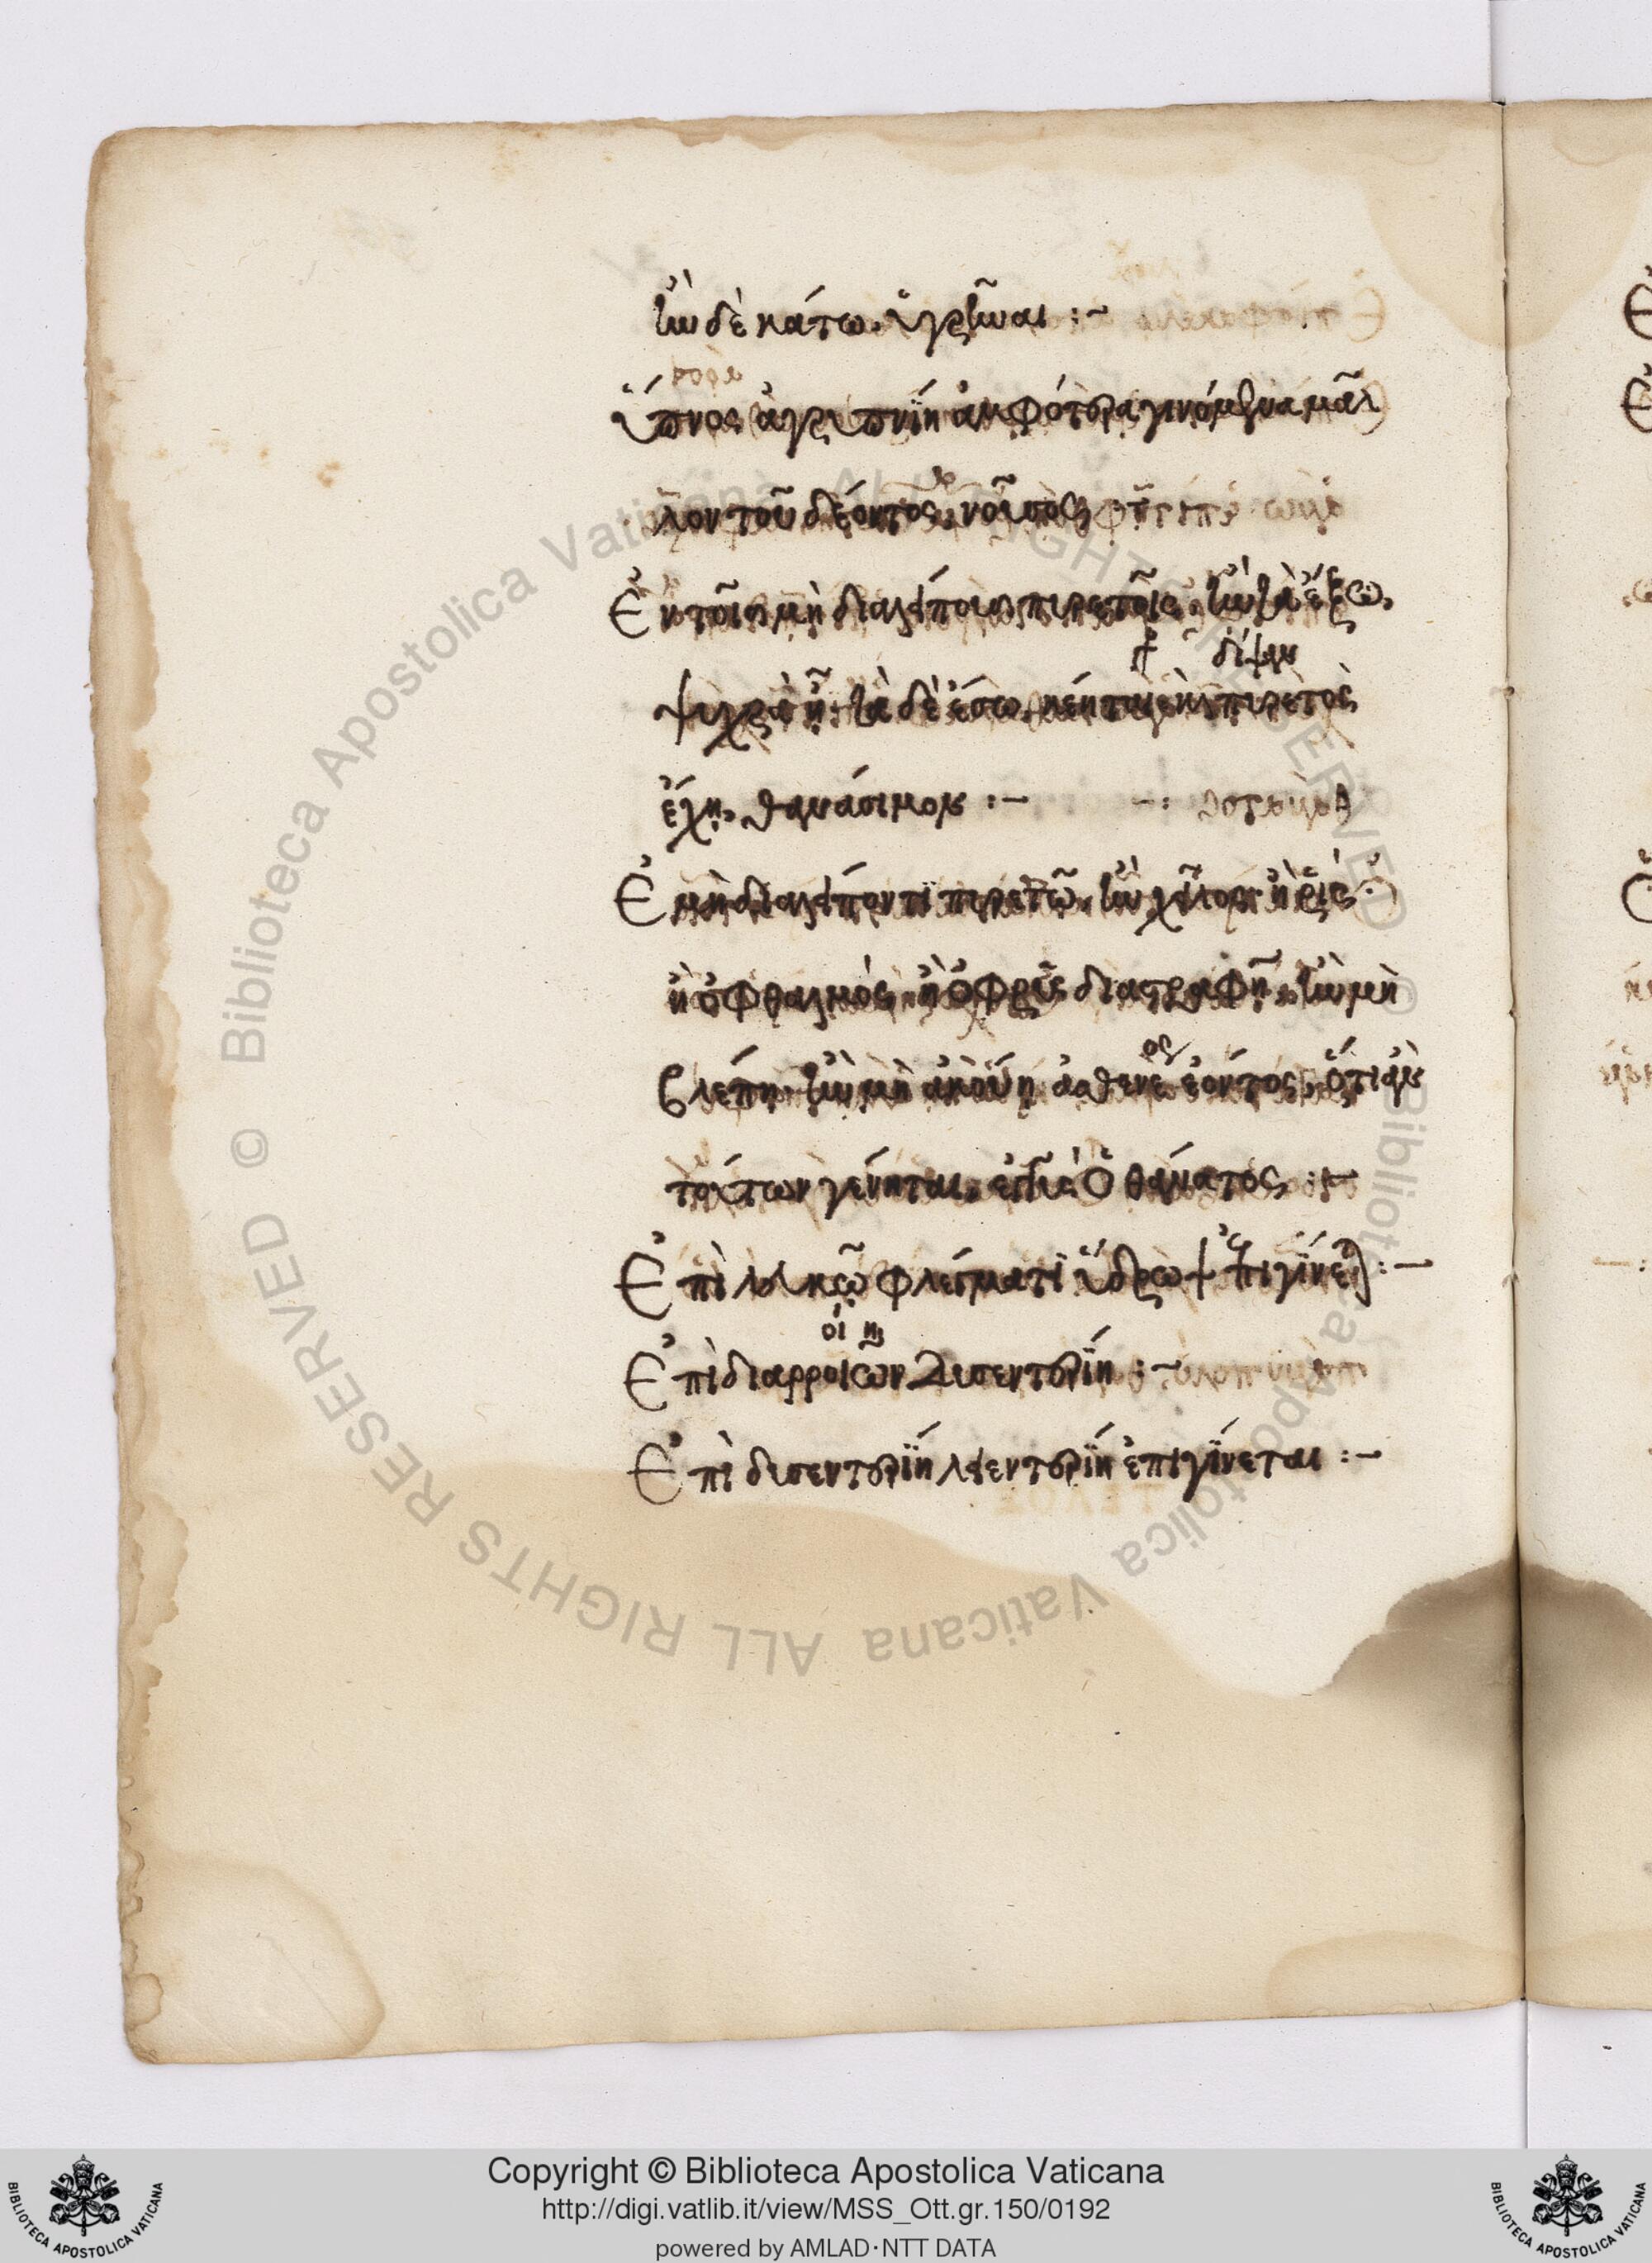 ἢν δὲ κάτω. ὑγρῆναι :~
Ὕπνος ἀγρυπνίη ἀμφότερα γινόμενα μᾶλ
λον τοῦ δέοντος, νοῦσος
Ἐν τοῖσι μὴ διαλείπουσι πυρετοῖς, ἢν τὰ ἔξω,
δίψαν
ψυχρὰ ᾖ. τὰ δὲ ἔσω, κέηται καὶ πυρετὸς
ἔχῃ, θανάσιμον :—
Ἐν μὴ διαλείποντι πυρετῶ, ἢν χεῖλος. ἢ ῥὶς
ἢ ὀφθαλμός. ἢ ὀφρῦς διαστραφῇ. ἢν μὴ
βλέπη. ἢν μὴ ἀκούῃ ἀσθενέ ἐόντος, ὅτι ἂν
ος
τουτων γένηται, ἐγγὺς ὁ θάνατος :—
Ἐπὶ λευκῷ φλέγματι ὕδρωψ ἐπιγίνεται :—
οι
Ἐπὶ διαρροιῶν δυσεντερίη :~
Ἐπὶ δυσεντερίη λειεντερίη ἐπιγίνεται :—
Biblioteca Apostolica Vaticana ALL RIGHTS RESERVED © Biblioteca Apostolica Vaticana ALL RIGHTS RESERVED ©
Copyright © Biblioteca Apostolica Vaticana
http://digi.vatlib.it/view/MSS_Ott.gr.150/0192
powered by AMLAD·NTT DATA
BIBLIOTECA APOSTOLICA VATICANA
BIBLIOTECA APOSTOLICA VATICANA